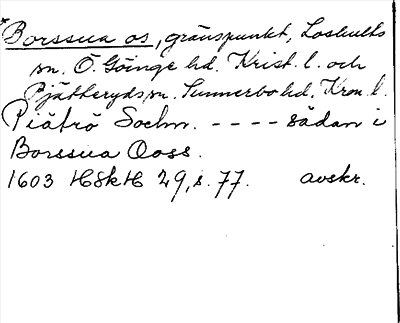 *Borssua os, gränspunkt, Loshults
sn. Ö. Göinge hd. Krist. l. och
Pjätteryds sn. Sunnerbo hd. Kron. l.
Piätrö Sochn. - - - - sådan i
Borssua Ooss.
1603 HSkH 29, s. 77. avskr.